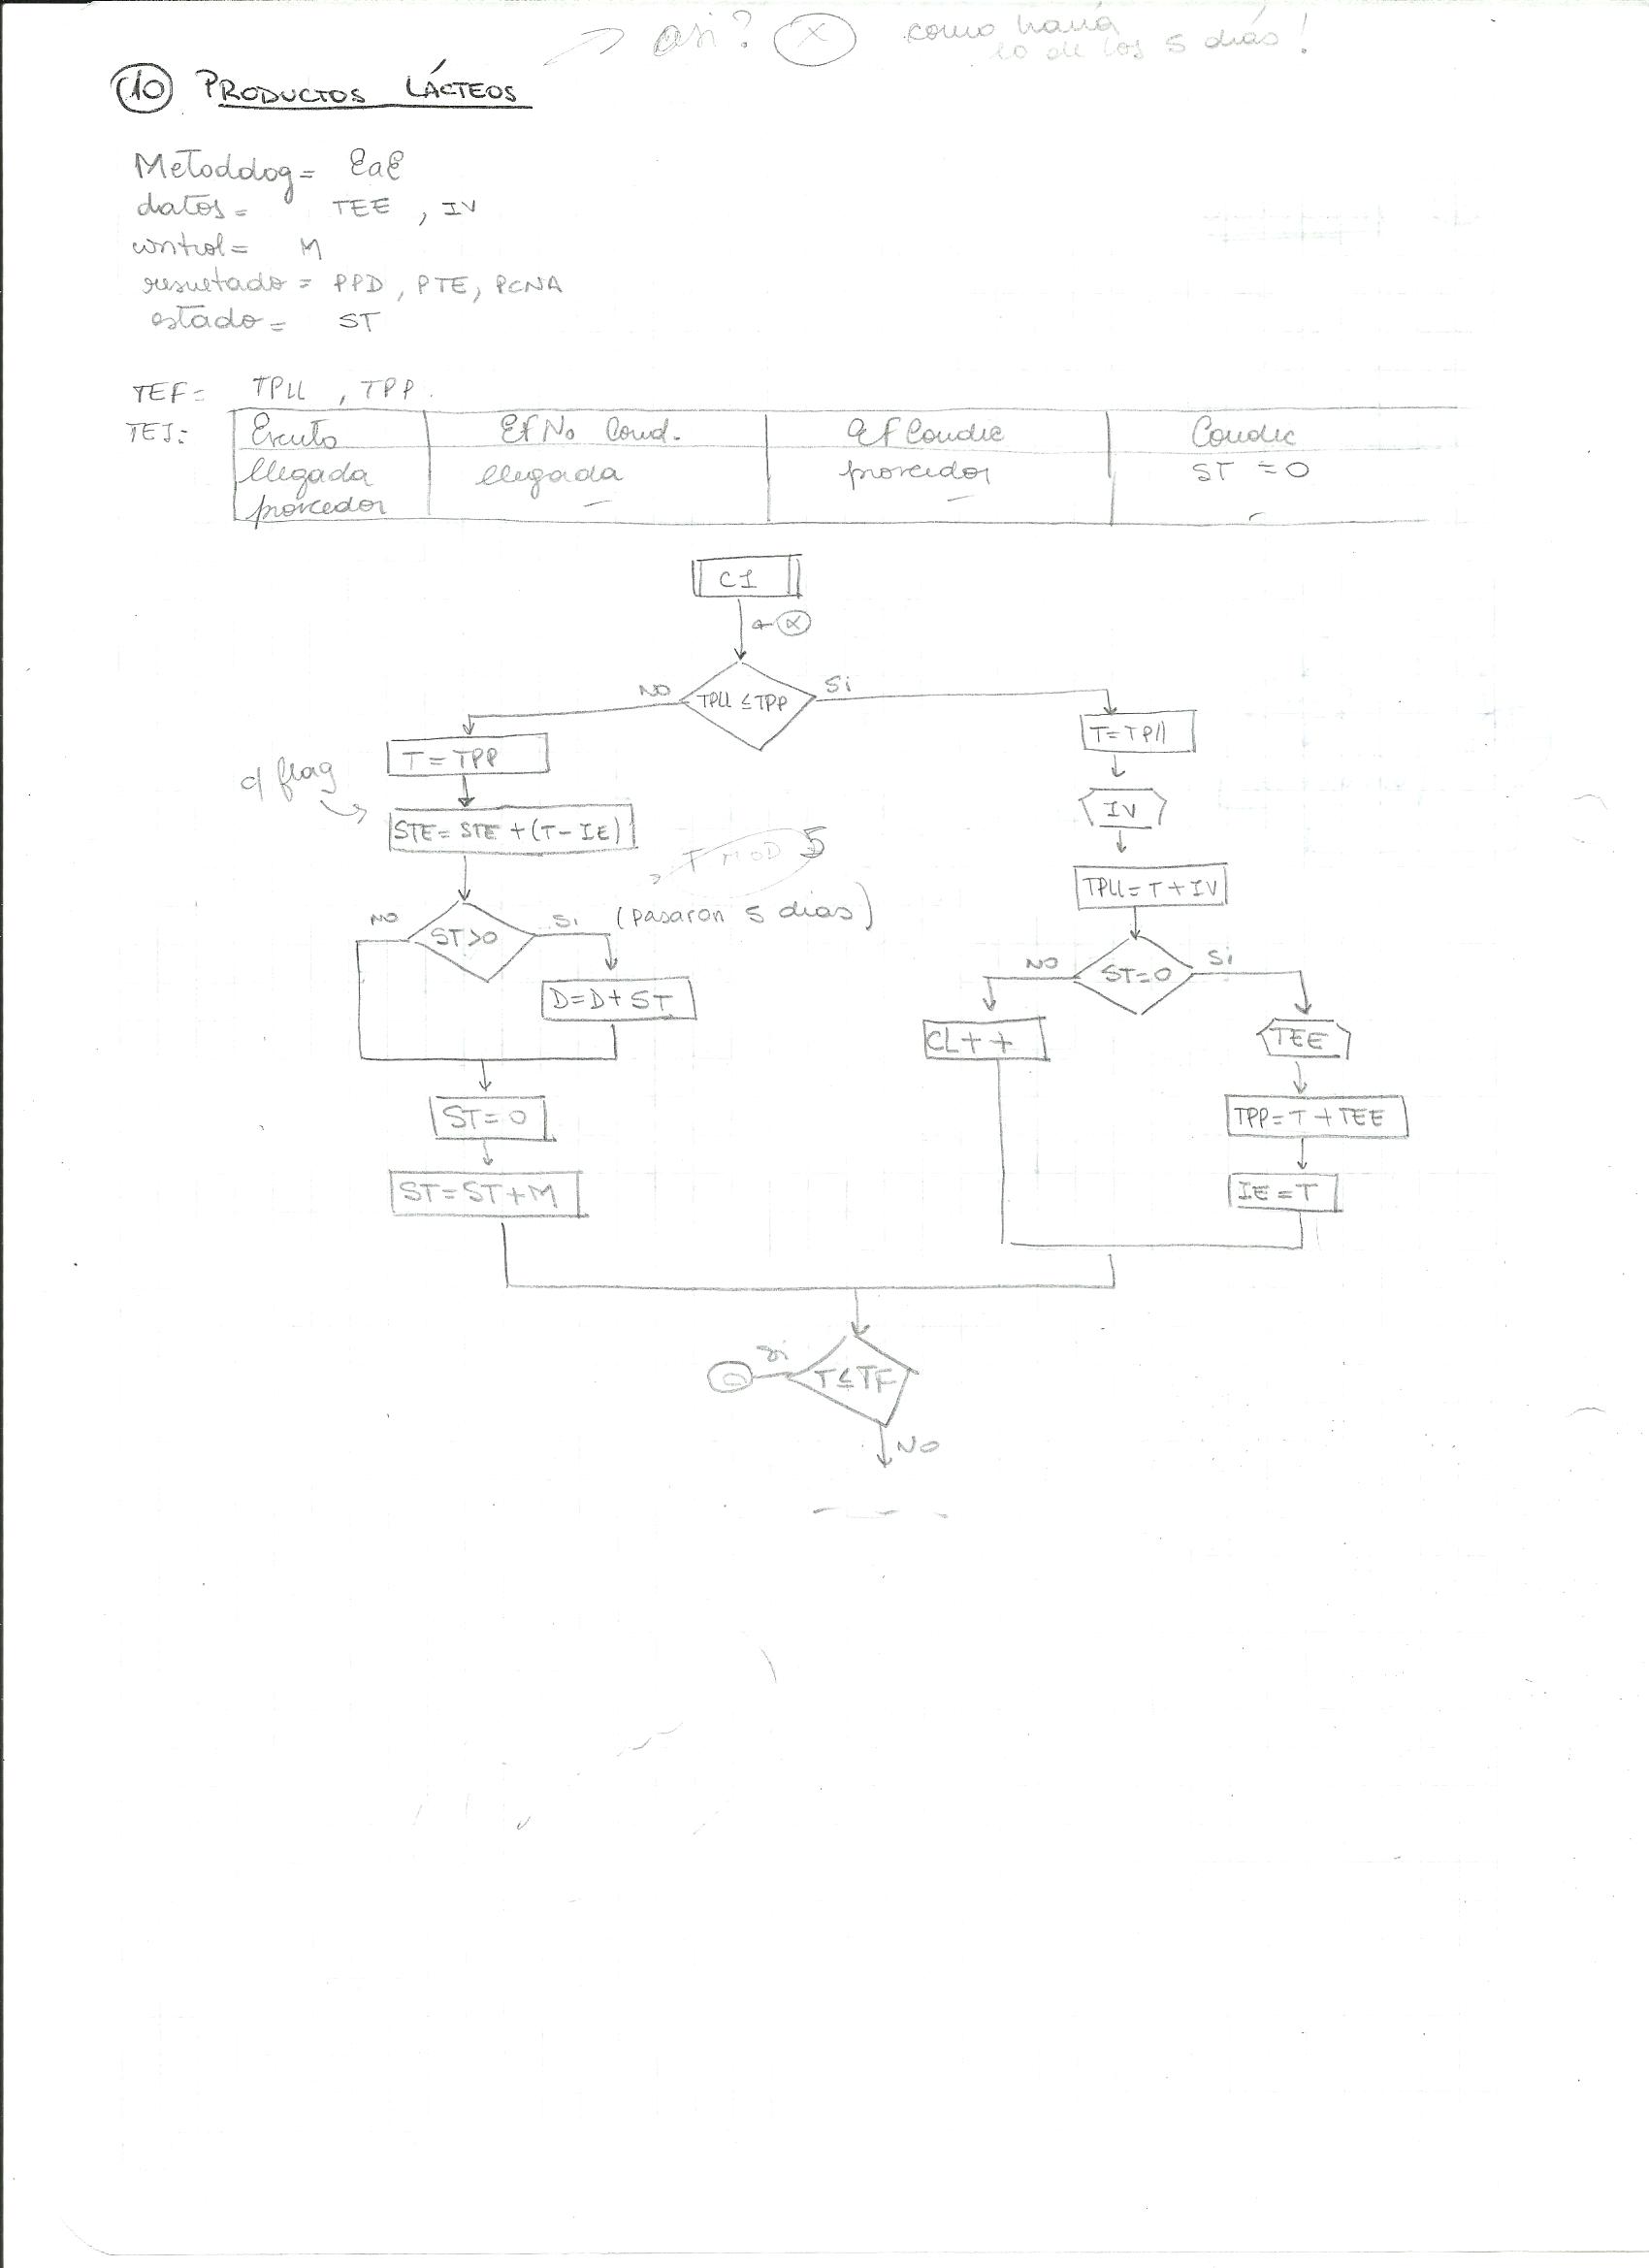 → asi? ⊗ como haría
lo de los 5 días!
10 PRODUCTOS LÁCTEOS
Metodolog = EaE
datos = TEE , IV
control = M
resultado = PPD, PTE, PCNA
estado = ST
TEF = TPLL , TPP.
TEI:
Evento Ef No Cond. Ef Condic Condic
llegada llegada proveedor ST = 0
proveedor – – –
C1
TPLL ≤ TPP
NO
Si
T = TPP
c/ flag
STE = STE + (T - IE)
T MOD 5
ST>0
NO
Si (pasaron 5 dias)
D = D + ST
ST = 0
ST = ST + M
T = TPLL
IV
TPLL = T + IV
ST = 0
NO
Si
CL + +
TEE
TPP = T + TEE
IE = T
T ≤ TF
Si
NO
– – –